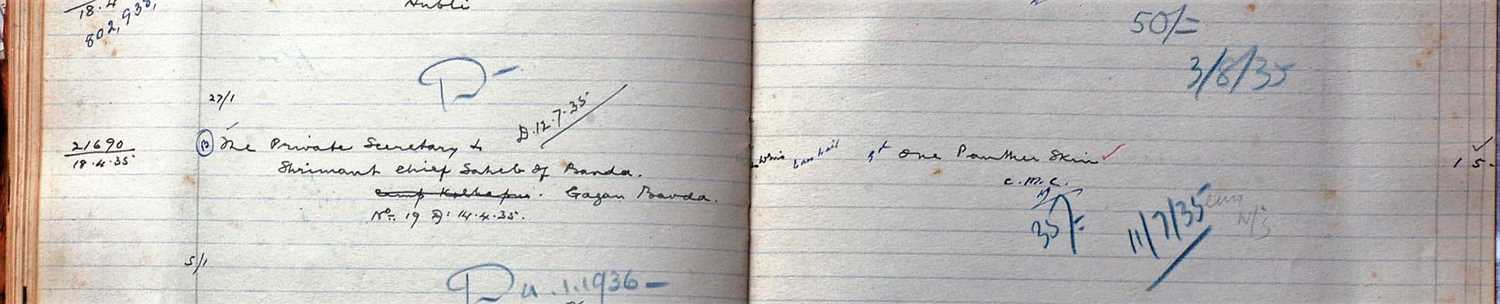 18.4
802,938,
Hubli
50/=
3/8/35
27/1
D.12.7.35
21690
18.4.35
The Private Secretary to
Shrimant Chief Saheb of Bavda.
Camp Kolhapur. Gagan Bavda.
No. 19 D: 14.4.35.
One Panther Skin
C.M.C.
35/=
11/7/35
1 5.
5/1
D 11.1.1936